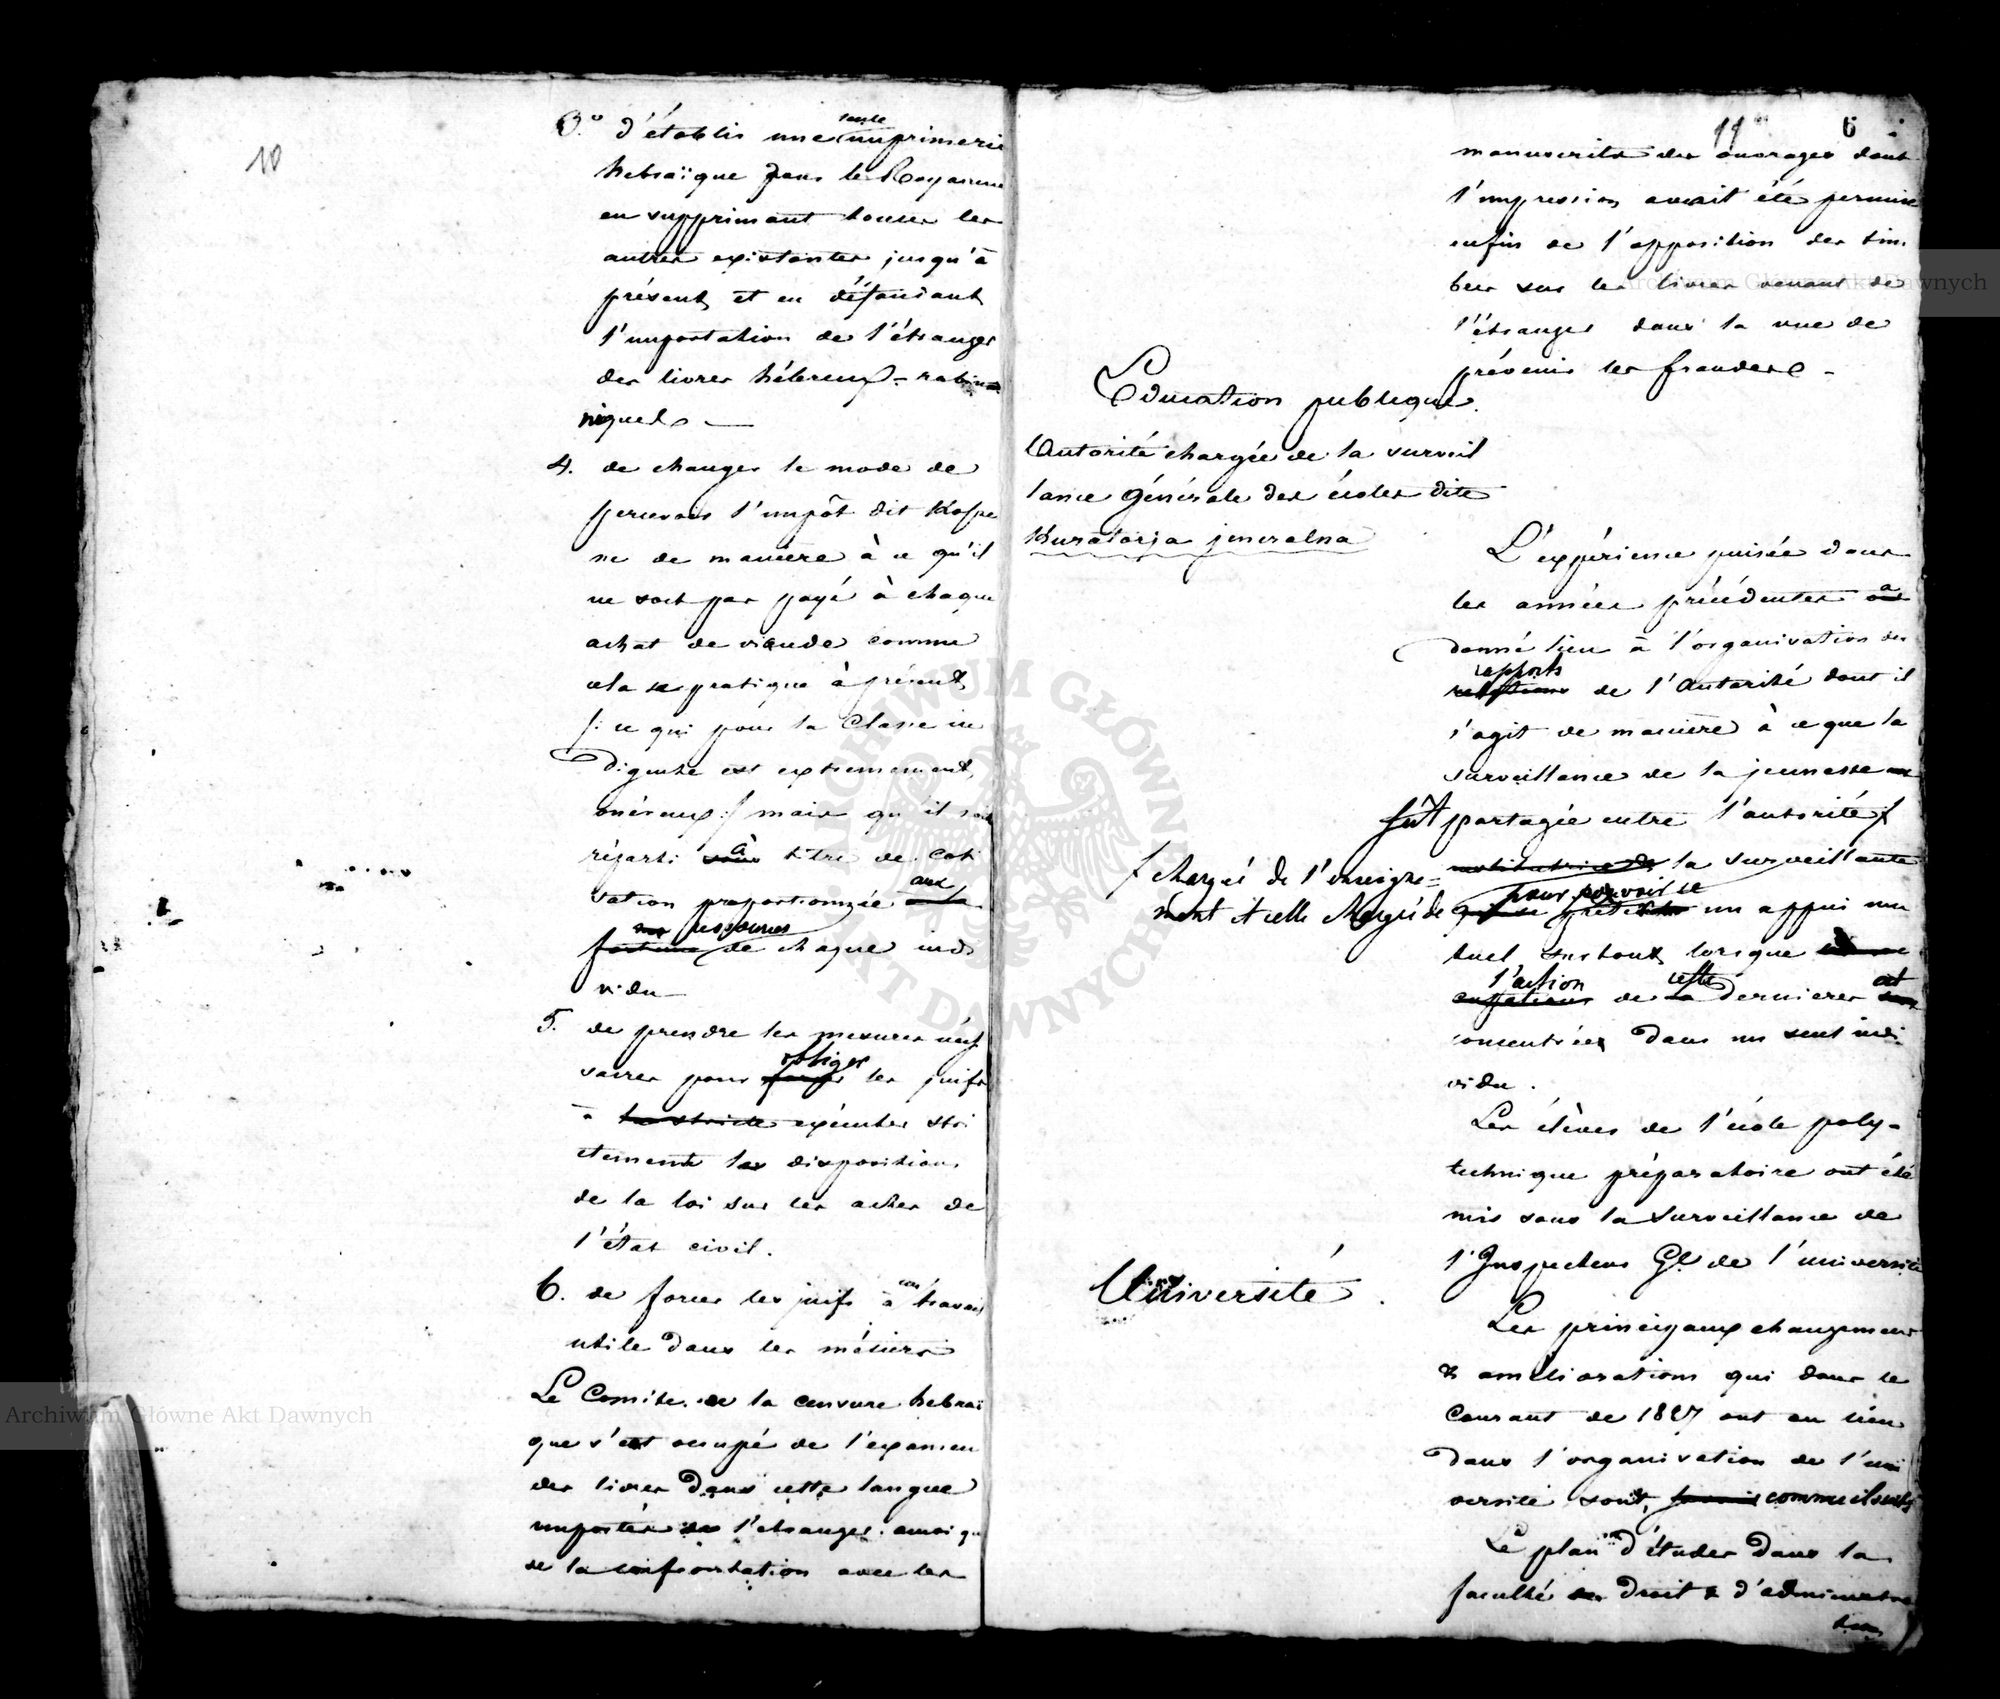 10
3.° d'établir une seule imprimerie
hebraïque dans le Royaume
en supprimant toutes les
autres existantes jusqu'à
présent et en défendant
l'importation de l'étranger
des livres hébreux-rabi-
niques —
4. de changer le mode de
percevoir l'impôt dit Kosze
ne de manière à ce qu'il
ne soit pas payé à chaque
achat de viande comme
cela se pratique à présent
/: ce qui pour la Classe in
digente est extremement
onéreux :/ mais qu'il soit
réparti sous à titre de coti
sation proportionnée à la aux
fortune ressources de chaque indi
vidu —
5. de prendre les mesures néces
saires pour forcer obliger les juifs
à la stricte exécuter stri
ctement les dispositions
de la loi sur les actes de
l'état civil.
6. de forcer les juifs à un travail
utile dans les métiers
Le Comité de la censure hebraï
que s'est occupé de l'examen
des livres dans cette langue
importés de l'étranger ainsi que
de la confrontation avec les
11 6
manuscrits des ouvrages dont
l'impression avait été permise
enfin de l'apposition des tim
bres sur les livres venant de
l'étranger dans la vue de
prévenir les fraudes -
Education publique.
Autorité chargée de la surveil
lance générale des écoles dite
Kuratorja jeneralna
L'expérience puisée dans
les années précédentes a
donné lieu à l'organisation des
relations rapports de l'Autorité dont il
s'agit de manière à ce que la
surveillance de la jeunesse
fût partagée entre l'autorité /
/ chargée de l'enseigne=
ment et celle chargée de
institutrice de la surveillante
pour pouvoir se prêter un appui mu
tuel surtout lorsque
l'action de cette dernière est
concentrée dans un seul indi
vidu.
Les élèves de l'école poly-
technique préparatoire ont été
mis sous la surveillance de
l'Inspecteur Gl de l'université
Université.
Les principaux changemens
& améliorations qui dans le
Courant de 1827 ont eu lieu
dans l'organisation de l'uni
versité sont, comme il suit
Le plan d'études dans la
faculté de Droit & d'administra
tion
Archiwum Główne Akt Dawnych
Archiwum Główne Akt Dawnych
ARCHIWUM GŁÓWNE AKT DAWNYCH